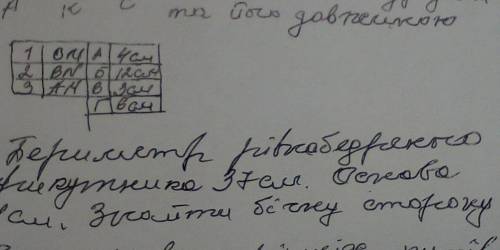 та його довжиною
1 ВМ А 4см
2 BN Б 12см
3 AN В 3см
Г 6см
Периметр рівнобедреного
трикутника 37см. Основа
см. Знайти бічну сторону